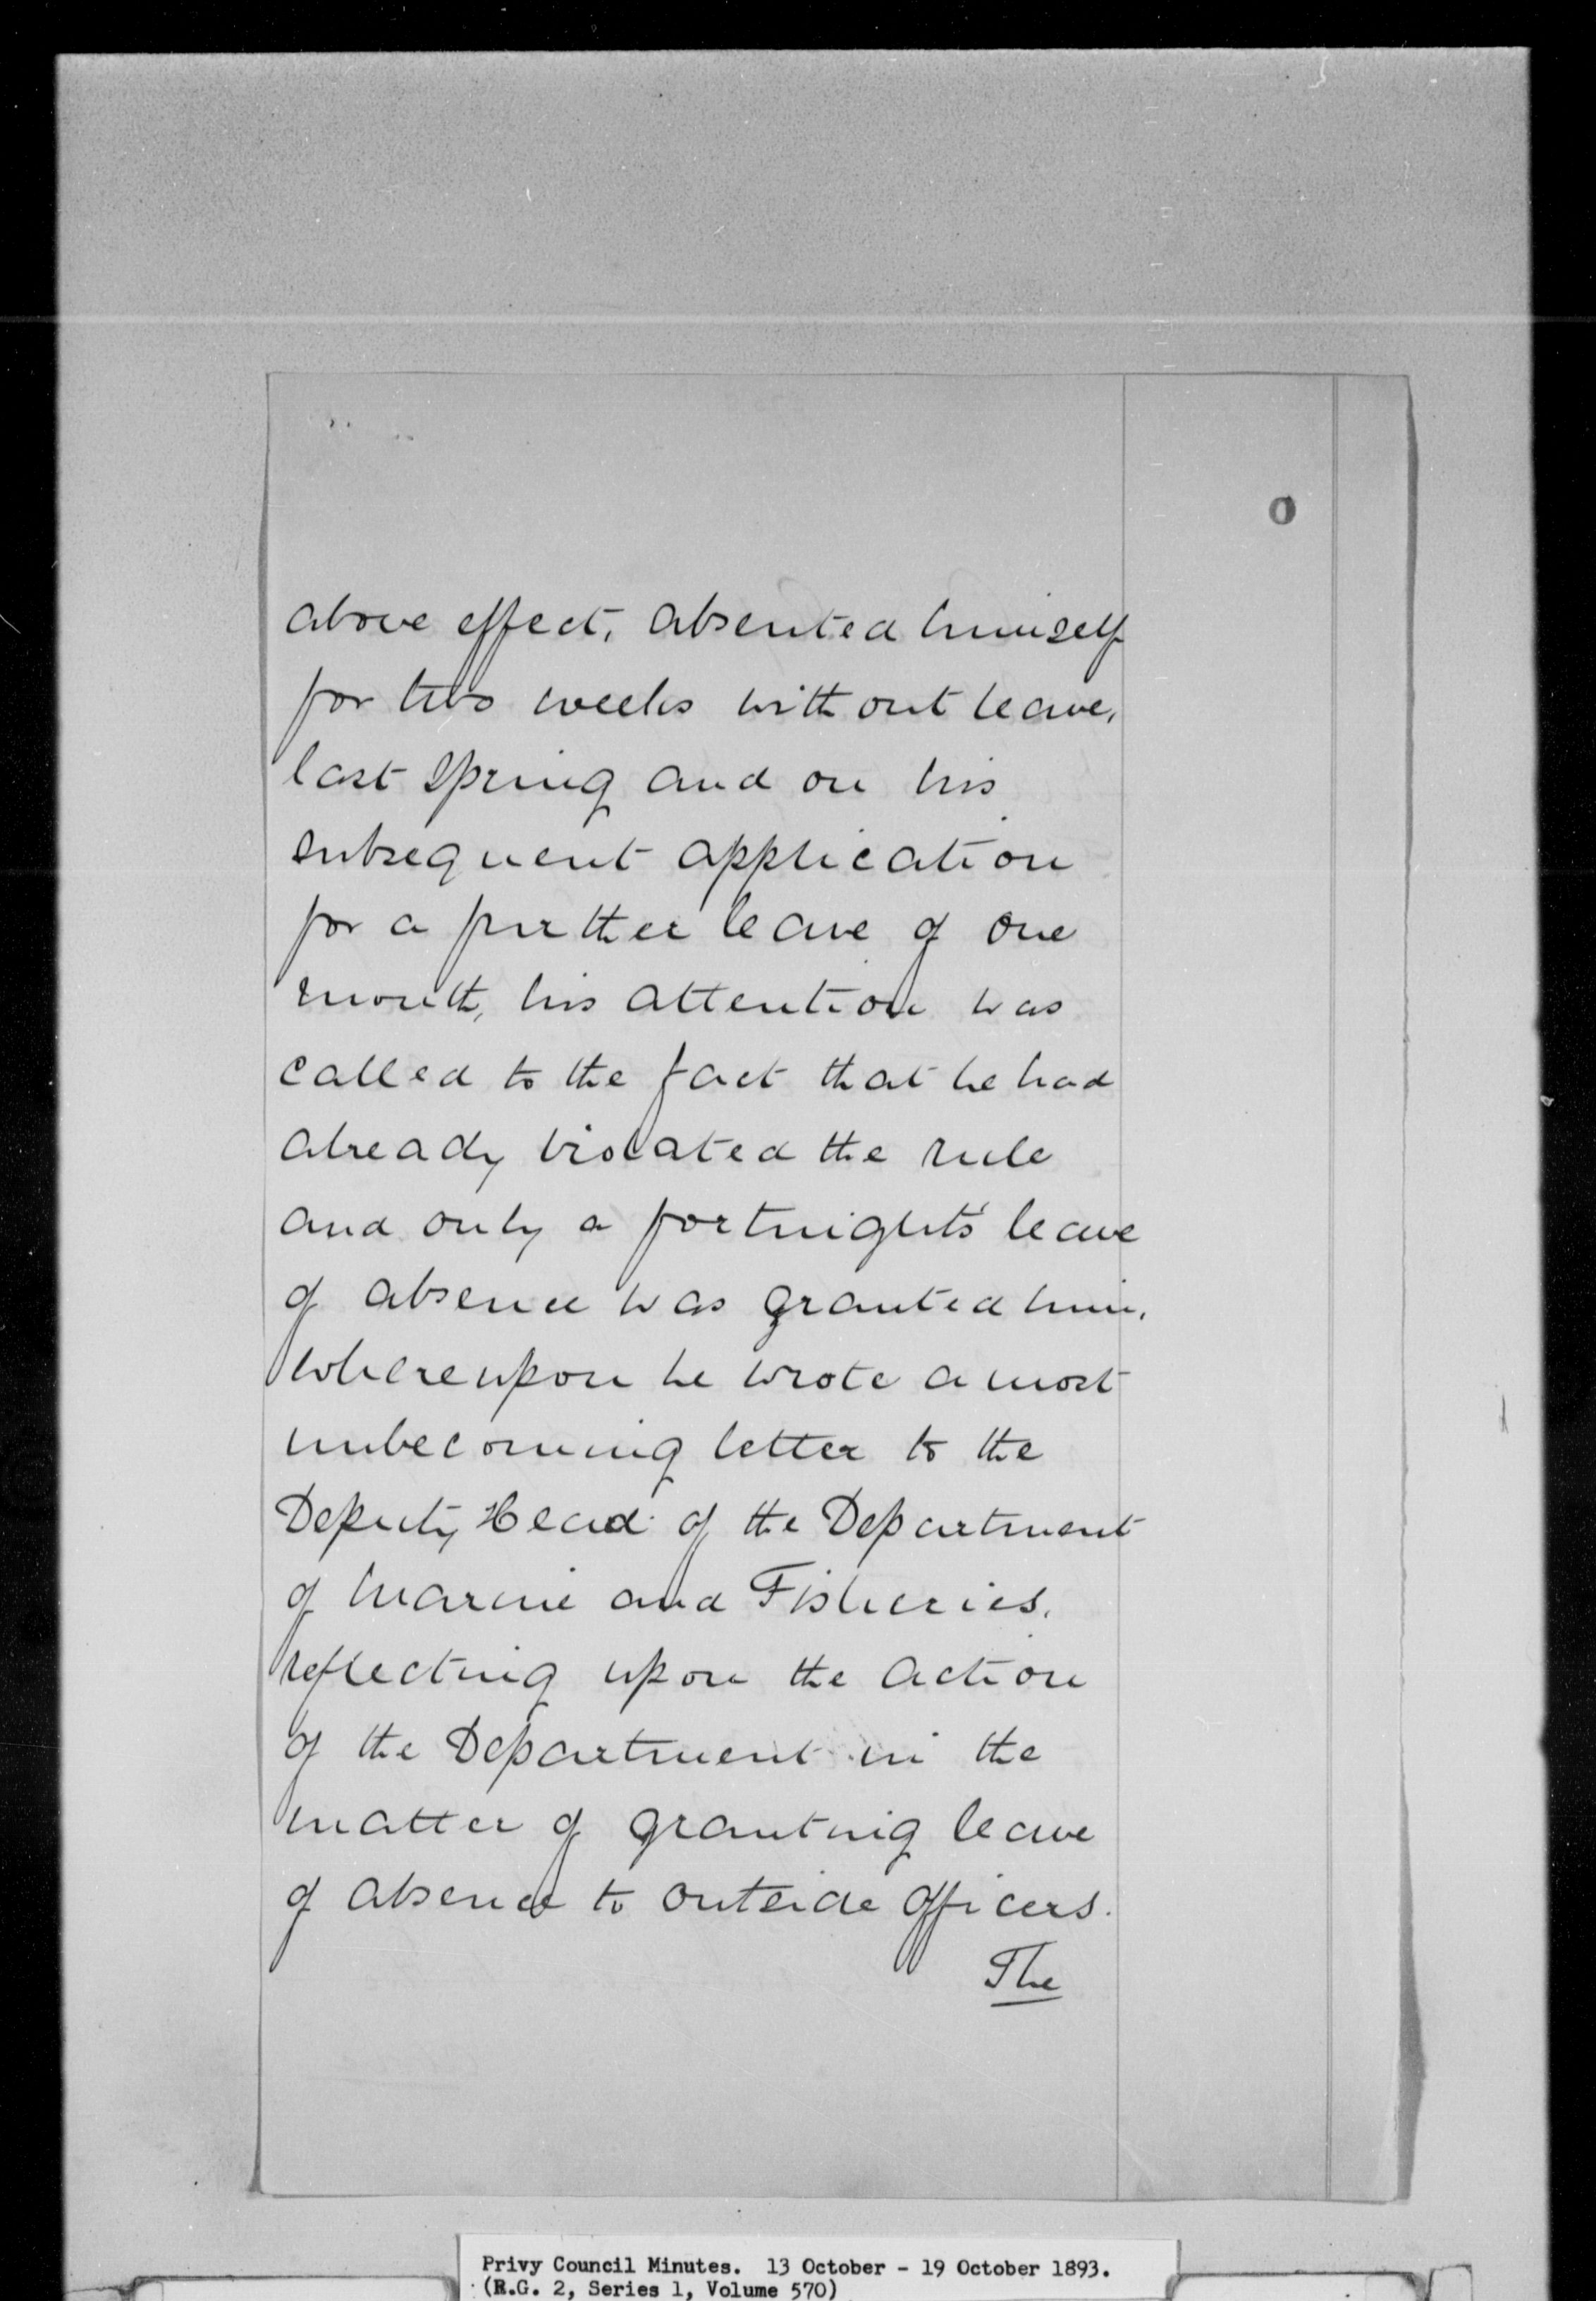 0
above effect, absented himself
for two weeks without leave,
last Spring and on his
subsequent application
for a further leave of one
month, his attention was
called to the fact that he had
already violated the rule
and only a fortnight's leave
of absence was granted him,
whereupon he wrote a most
unbecoming letter to the
Deputy Head of the Department
of Marine and Fisheries,
reflecting upon the action
of the Department in the
matter of granting leave
of absence to outside officers.
The
Privy Council Minutes. 13 October - 19 October 1893.
(R.G. 2, Series 1, Volume 570)